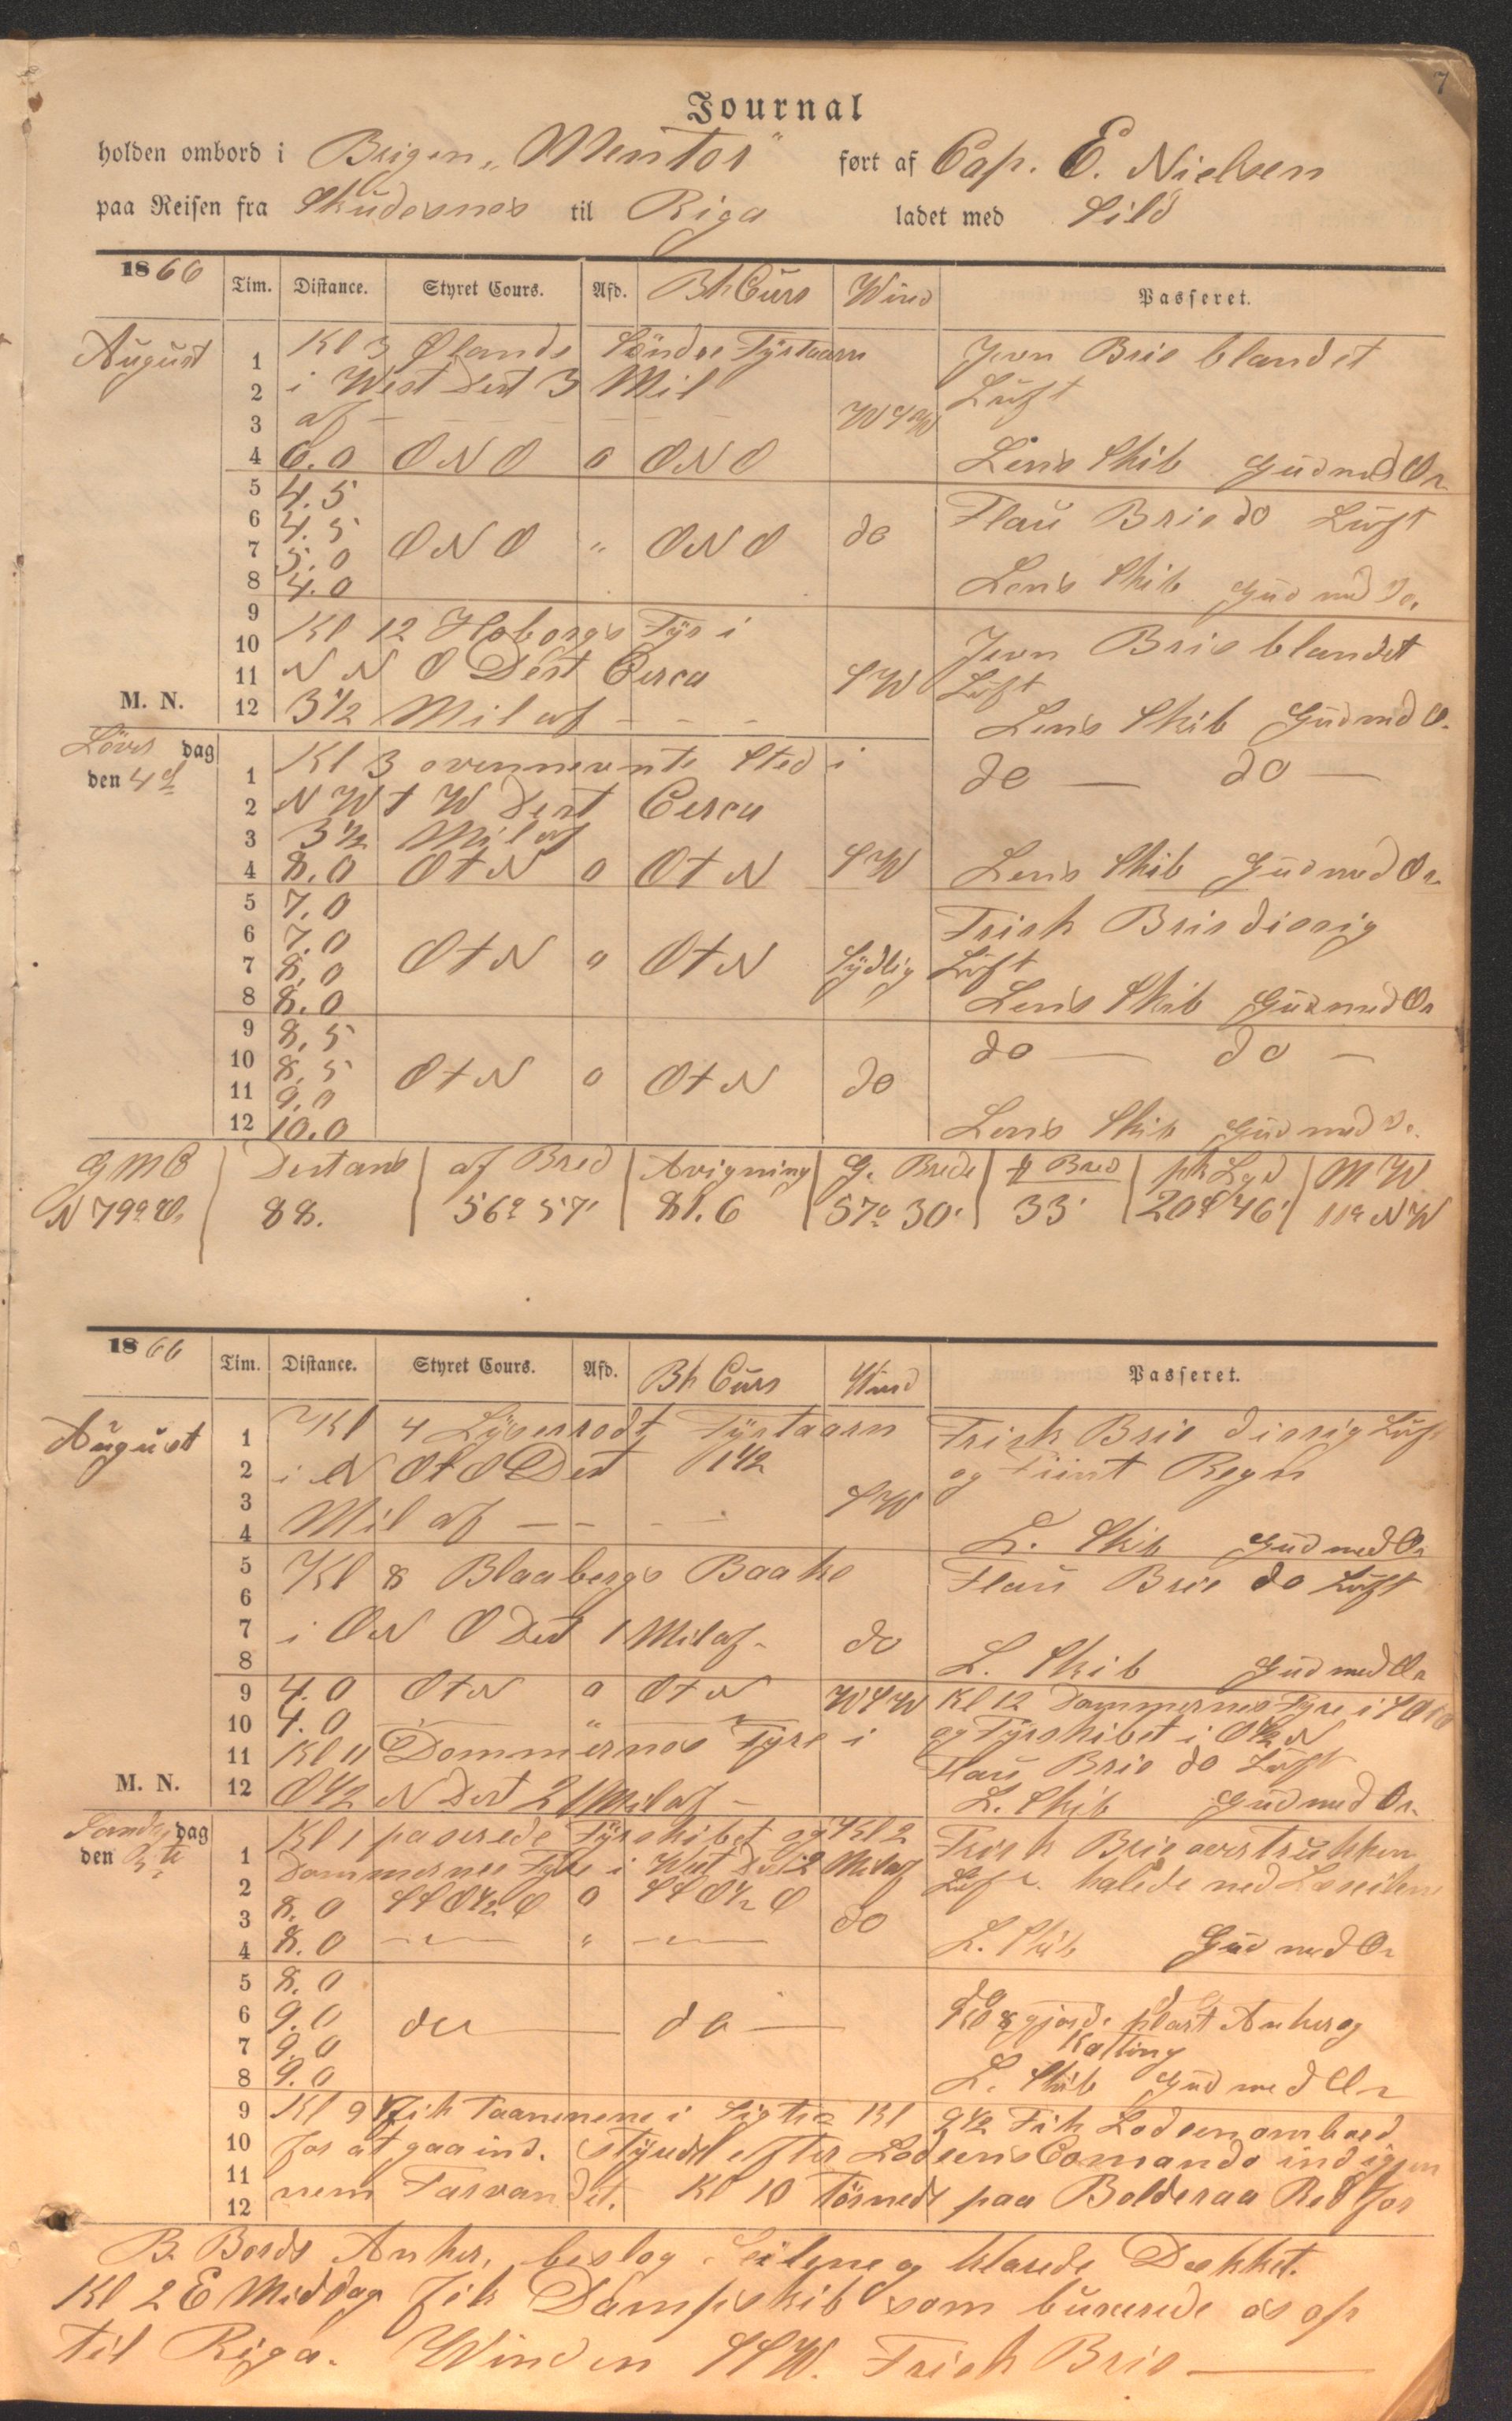 7
Journal
holden ombord i Brigen „Mentor" ført af Cap. E. Nielsen
paa Reisen fra Skudesnes til Riga ladet med Sild
1866 Tim. Distance. Styret Cours. Afd. Bh Curs Wind Passeret.
August 1 Kl 3 Ølands Söndre Fyrtaarn Jevn Bris blandet
2 i West Dist 3 Mil Luft
3 af – – – – WSW
4 6.0 ONO 0 ONO Lens Skib Gud med Os
5 4.5 Flau Bris do Luft
6 4.5 ONO " ONO do
7 5.0
8 4.0 Lens Skib Gud med Os.
9 Kl 12 Hoborgs Fyr i
10 NNO Dist Cerca Jevn Bris blandet
11 3 1/2 Mil af – – – SW Luft
M. N. 12 Lens Skib Gud med O.
Løver dag Kl 3 ovennevnte Sted i do — do —
den 4de 1
2 NWtW Dist Cerca
3 3 1/2 Mil af
4 8.0 OtN 0 OtN SW Lens Skib Gud med Os
5 7.0 Frisk Bris diesig
6 7.0 OtN 0 OtN Sydlig Luft
7 8.0
8 8.0 Lens Skib Gud med Os
9 8.5 do — do —
10 8.5 OtN 0 OtN do
11 9.0
12 10.0 Lens Skib Gud med Os.
GMC Distans af Bred Avigning G. Brede Bred pk Lgd MW
N 79° O. 88. 56° 57' 81.6 57° 30' 33' 20° 46' 11° NW
1866 Tim. Distance. Styret Cours. Afd. Bh Curs Wind Passeret.
August 1 Kl 4 Lyserrodt Fyrtaarn Frisk Bris diesig Luft
2 i NOtO Dist 1 1/2 og Fiint Regn
3 Mil af – – – – SW
4 L. Skib Gud med Os
5 Kl 8 Blaabergs Baake Flau Bris do Luft
6
7 i ONO Dist 1 Mil af – do
8 L. Skib Gud med Os
9 4.0 OtN 0 OtN WSW Kl 12 Dommernes Fyre i
10 4.0 — " — og Fyrskibet i O 1/2 N
11 Kl 11 Dommernes Fyre i Flau Bris do Luft
M. N. 12 O 1/2 N Dist 2 Mil af – L. Skib Gud med Os.
Søndag dag Kl 1 paserede Fyrskibet og Kl 2 Frisk Bris overtrukken
den 5te 1 Dommernes Fyre i West Dist 2 Mil af Luft. halede ned Læseilene
2
3 8.0 SSO 1/2 O 0 SSO 1/2 O do
4 8.0 — " — L. Skib Gud med Os
5 8.0 do do
6 9.0 do — do — Kl 8 gjorde klart Anker og
7 9.0 Kætting
8 9.0 L. Skib Gud med Os
9 Kl 9 Fik Taarnene i Sigte Kl 9 1/2 Fik Lodsen ombord
10 for at gaa ind. Styrede efter Lodsens Comando ind igjen
11 nem Farvandet. Kl 10 Törnede paa Bolderaa Red for
12
B. Bords Anker, beslog Seilene og klarede Dækket.
Kl 2 E Middag fik Dampskib som buxerede os op
til Riga. Winden SSW. Frisk Bris —